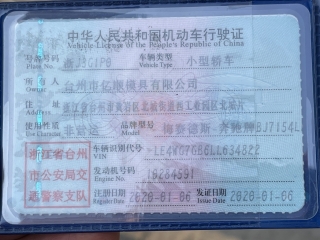 中华人民共和国机动车行驶证
Vehicle License of the People's Republic of China
号牌号码 Plate No. 车辆类型 Vehicle Type 小型轿车
所有人 Owner 台州市亿顺模具有限公司
住址 Address 浙江省台州市黄岩区北城街道
使用性质 Use Character 非营运 品牌型号 Model 梅赛德斯-奔驰牌BJ7154L
浙江省台州市公安局交通警察支队
车辆识别代号 VIN
发动机号码 Engine No.
注册日期 Register Date 2020-01-06 发证日期 Issue Date 2020-01-06